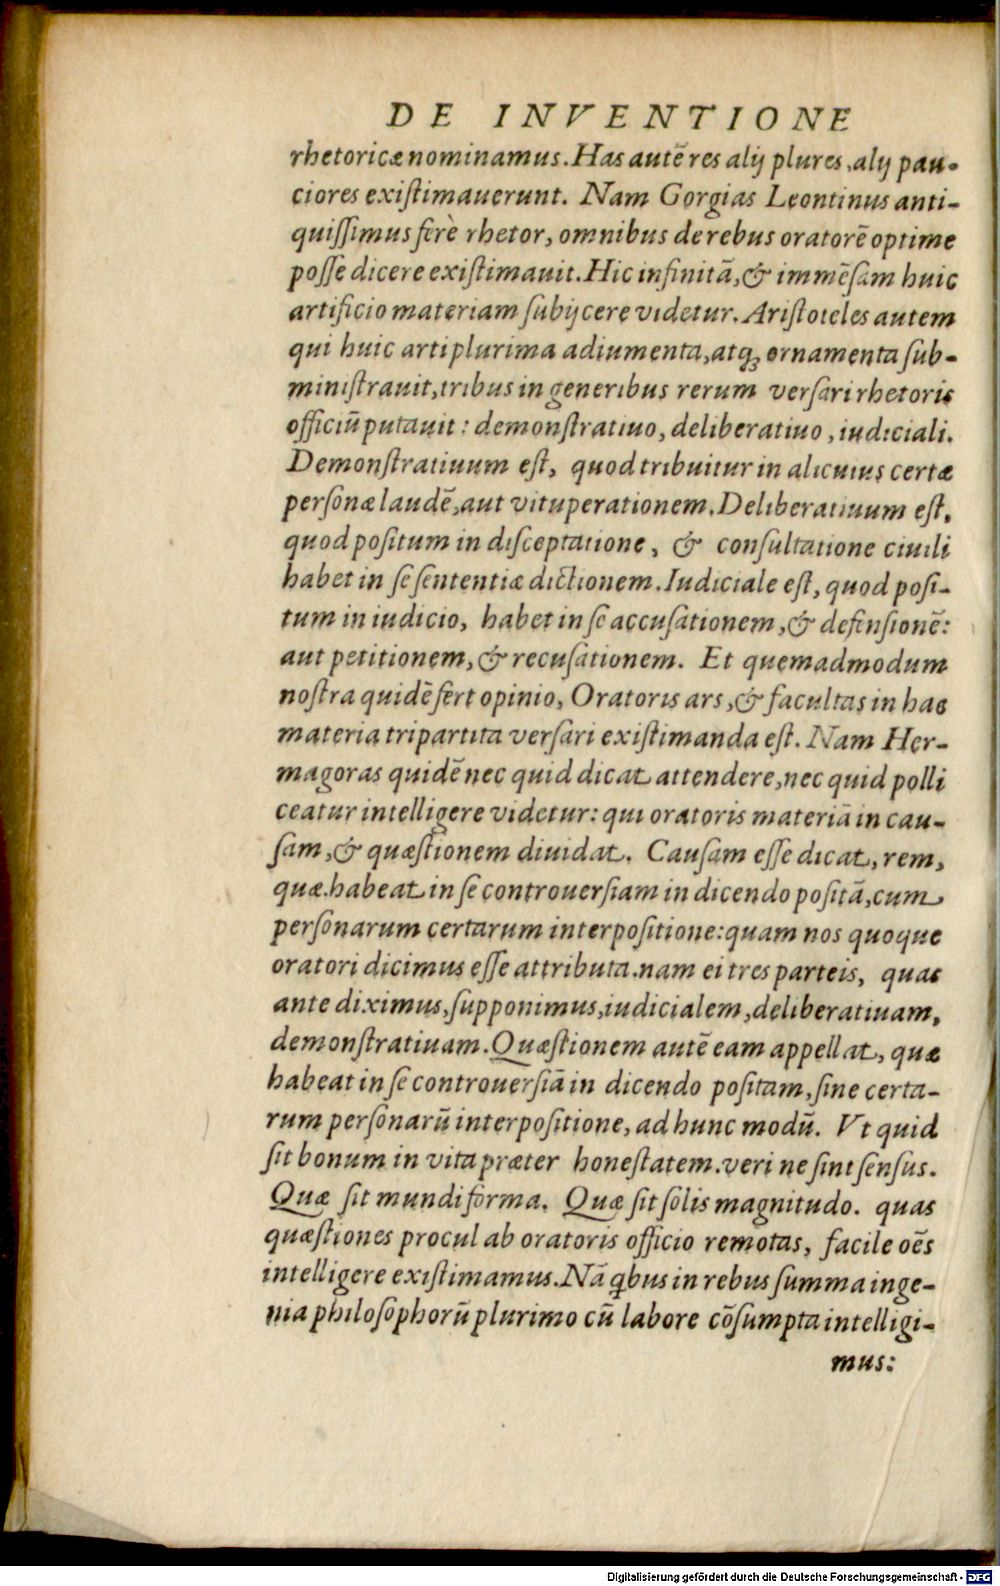 DE INVENTIONE
rhetoricæ nominamus. Has autē res alij plures, alij pau-
ciores exiſtimauerunt. Nam Gorgias Leontinus anti-
quiſſimus ferè rhetor, omnibus de rebus oratorē optime
poſſe dicere exiſtimauit. Hic infinitā, & immēſam huic
artificio materiam ſubijcere videtur. Ariſtoteles autem
qui huic arti plurima adiumenta, atqꝫ ornamenta ſub-
miniſtrauit, tribus in generibus rerum verſari rhetoris
officiū putauit: demonſtratiuo, deliberatiuo, iudiciali.
Demonſtratiuum eſt, quod tribuitur in alicuius certæ
perſonæ laudē, aut vituperationem. Deliberatiuum eſt,
quod poſitum in diſceptatione, & conſultatione ciuili
habet in ſe ſententiæ dictionem. Iudiciale eſt, quod poſi-
tum in iudicio, habet in ſe accuſationem, & defenſionē:
aut petitionem, & recuſationem. Et quemadmodum
noſtra quidē fert opinio, Oratoris ars, & facultas in hac
materia tripartita verſari exiſtimanda eſt. Nam Her-
magoras quidē nec quid dicat attendere, nec quid polli
ceatur intelligere videtur: qui oratoris materiā in cau-
ſam, & quæſtionem diuidat. Cauſam eſſe dicat, rem,
quæ habeat in ſe controuerſiam in dicendo poſitā, cum
perſonarum certarum interpoſitione: quam nos quoque
oratori dicimus eſſe attributa. nam ei tres parteis, quas
ante diximus, ſupponimus, iudicialem, deliberatiuam,
demonſtratiuam. Quæſtionem autē eam appellat, quæ
habeat in ſe controuerſiā in dicendo poſitam, ſine certa-
rum perſonarū interpoſitione, ad hunc modū. Vt quid
ſit bonum in vita præter honeſtatem. veri ne ſint ſenſus.
Quæ ſit mundi forma. Quæ ſit ſolis magnitudo. quas
quæſtiones procul ab oratoris officio remotas, facile oēs
intelligere exiſtimamus. Nā qͥbus in rebus ſumma inge-
nia philoſophorū plurimo cū labore cōſumpta intelligi-
mus:
Digitalisierung gefördert durch die Deutsche Forschungsgemeinschaft - DFG